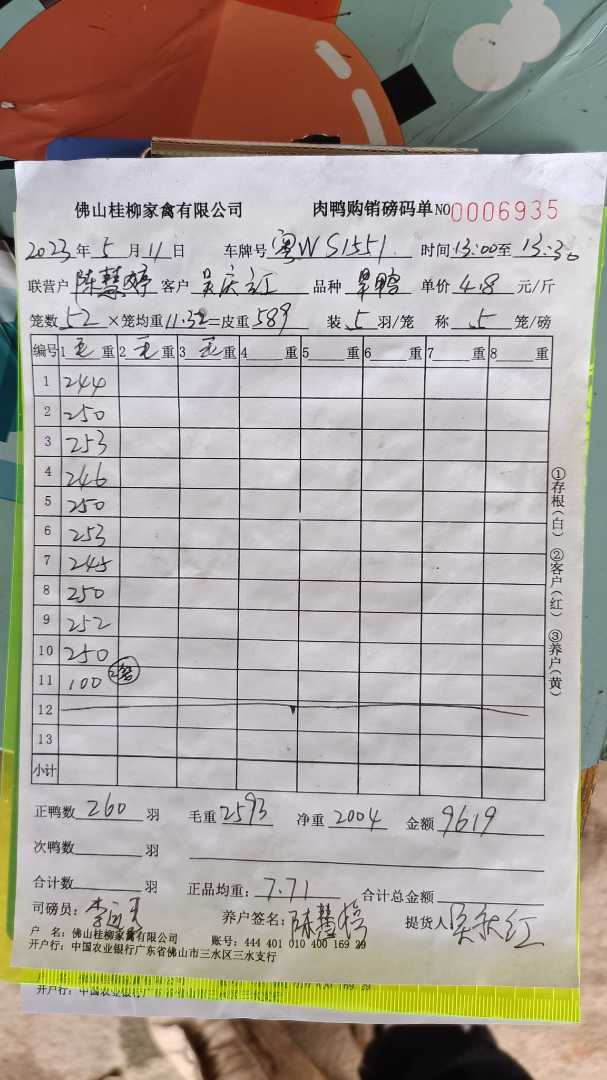 佛山桂柳家禽有限公司 肉鸭购销磅码单 NO 0006935
2023年5月11日 车牌号 粤W S1551 时间13:00至13:30
联营户 陈慧婷 客户 吴庆红 品种 旱鸭 单价 4.8 元/斤
笼数 52 ×笼均重 11.32 =皮重 589 装 5 羽/笼 称 5 笼/磅
编号 1 毛 重 2 毛 重 3 毛 重 4 重 5 重 6 重 7 重 8 重
1 244
2 250
3 253
4 246
5 250
6 253
7 245
8 250
9 252
10 250
11 100 2笼
12
13
小计
①存根(白) ②客户(红) ③养户(黄)
正鸭数 260 羽 毛重 2593 净重 2004 金额 9619
次鸭数 羽
合计数 羽 正品均重: 7.71 合计总金额
司磅员: 养户签名: 陈慧婷 提货人 红
户 名: 佛山桂柳家禽有限公司 账号: 444 401 010 400 169 29
开户行: 中国农业银行广东省佛山市三水区三水支行
户 名: 佛山桂柳家禽有限公司 账号: 444 401 010 400 169 29
开户行: 中国农业银行广东省佛山市三水区三水支行